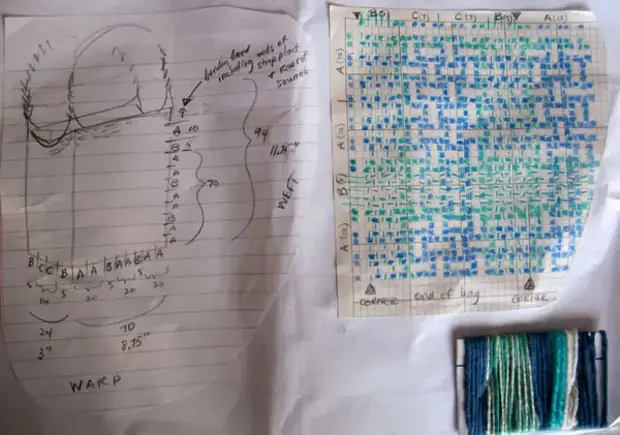 border band
including ends of
strap plait
+ row of
soumak
?
A 10
B 5
A
A
B
A
A
B
A
A
70
94
11.75"
WEFT
B C C B A A B A A B A A
5 5 20 5 20 5 20
24
3"
70
8.75"
WARP
B(5) C(7) C(7) B(5) A(10)
A(10)
A(10)
B(5)
A(10)
CORNER end of bag CORNER